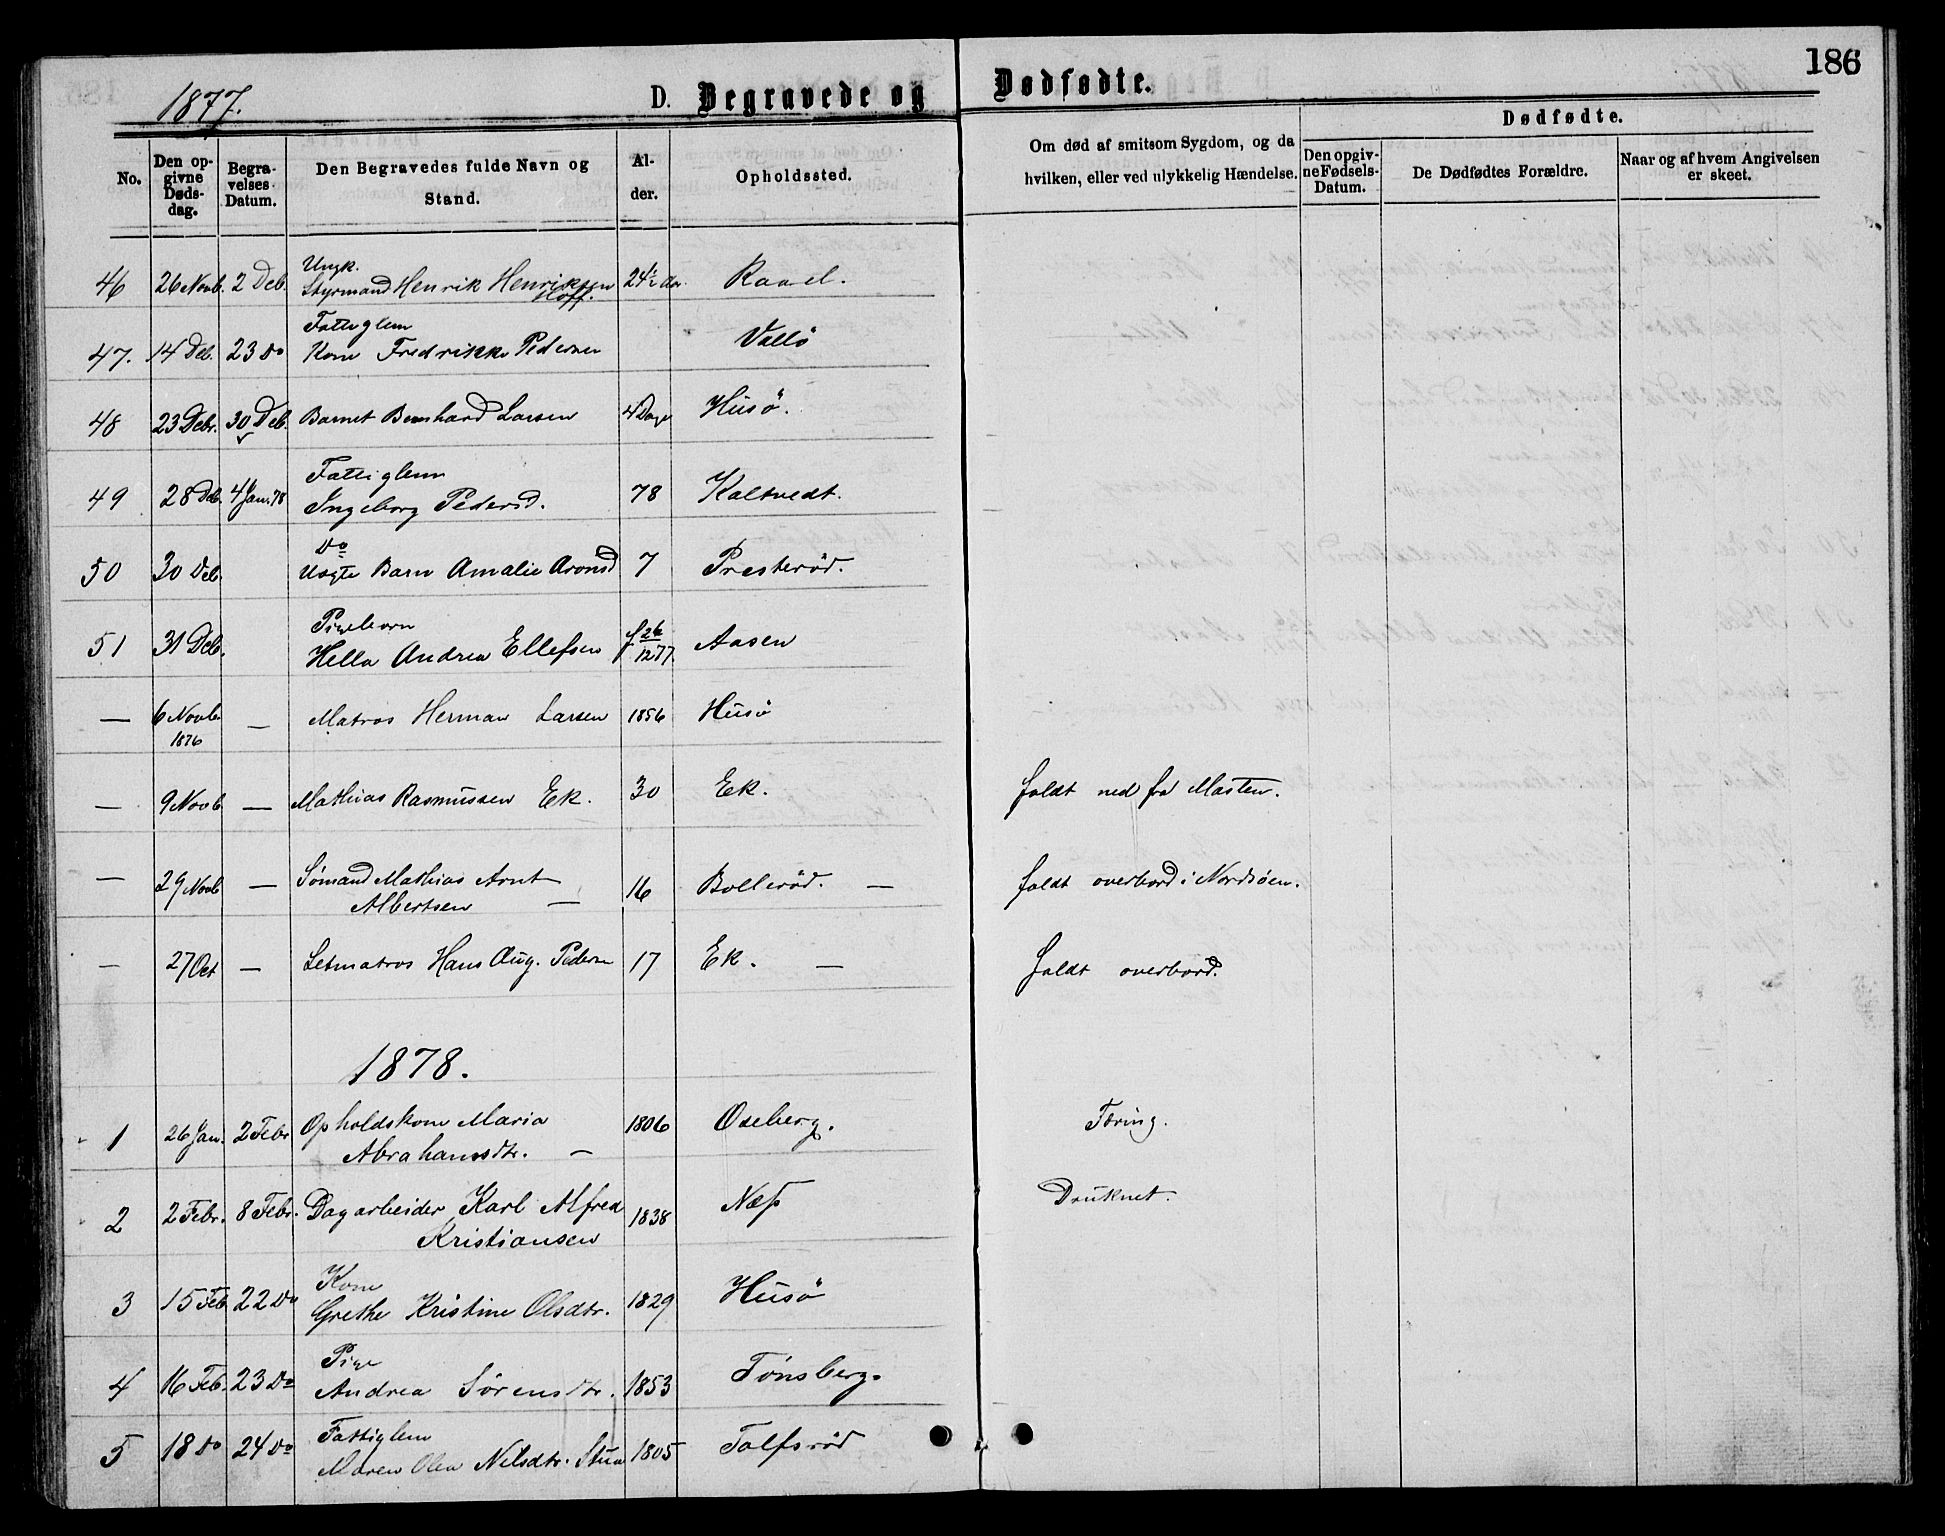 186
1877.
D. Begravede og Dødfødte.
No.
Den opgivne Dødsdag.
Begravelses Datum.
Den Begravedes fulde Navn og Stand.
Alder.
Opholdssted.
Om død af smitsom Sygdom, og da hvilken, eller ved ulykkelig Hændelse.
Dødfødte.
Den opgivne Fødsels-Datum.
De Dødfødtes Forældre.
Naar og af hvem Angivelsen er skeet.
Ungk.
46 26 Novb. 2 Deb. Styrmand Henrik Henriksen 24½ Aar Raael.
Hoff.
Fattiglem
47. 14 Deb. 23 Do Kone Fredrikke Pedersen Vallö
48 23 Debr. 30 Deb. Barnet Bernhard Larsen 4 Dage Husö.
Fattiglem
49 28 Deb. 4 Jan. 78 Ingeborg Pedersd. 78 Kaltvedt.
Do
50 30 Deb. Uægte Barn Amalie Aronsd 7 Presterød.
Pigebarn
51 31 Deb. Hella Andrea Ellefsen f. 26/12 77. Aasen
— 6 Novb. — Matros Herman Larsen 1856 Husö
1876
— 9 Novb — Mathias Rasmussen Ek. 30 Ek. faldt ned fra Masten.
— 29 Novb — Sömand Mathias Arnt 16 Bollerød. — faldt overbord i Nordsöen.
Albertsen —
— 27 Oct — Letmatros Hans Aug. Pedersen 17 Ek. — faldt overbord.
1878.
1 26 Jan. 2 Febr Opholdskone Maria 1806 Oseberg. Tæring.
Abrahamsdtr. —
2 2 Febr. 8 Febr. Dagarbeider Karl Alfred 1838 Næss Druknet.
Kristiansen
Kone
3 15 Feb 22 Do Grethe Kristine Olsdtr. 1829 Husö
Pige
4 16 Feb. 23 Do Andrea Sörensdtr. 1853 Tönsberg.
Fattiglem
5 18 Do 24 Do Maren Olea Nilsdtr. 1805 Tolfsrød